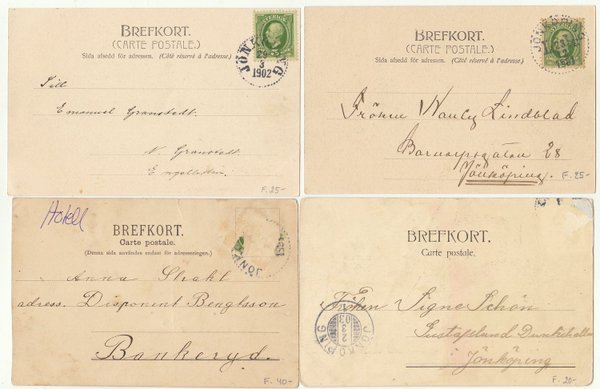 BREFKORT.
(CARTE POSTALE.)
Sida afsedd för adressen. (Côté réservé à l'adresse.)
JÖNKÖPING
29
3
1902
Till
Emanuel Granstedt.
N Granstedt.
F. 25-
BREFKORT.
(CARTE POSTALE.)
Sida afsedd för adressen. (Côté réservé à l'adresse.)
Fröken Lindblad
Barnarpsgatan 28
Jönköping.
F. 25-
Hotell
BREFKORT.
Carte postale.
(Denna sida användes endast för adresseringen.)
JÖN
Anna Strakl
adress. Disponent Bengtsson
Bankeryd.
F. 40-
BREFKORT.
Carte postale.
JÖNKÖPING
2
3
03
Fröken Signe Schön
Gustafslund Dunkehallar
Jönköping
F. 20-